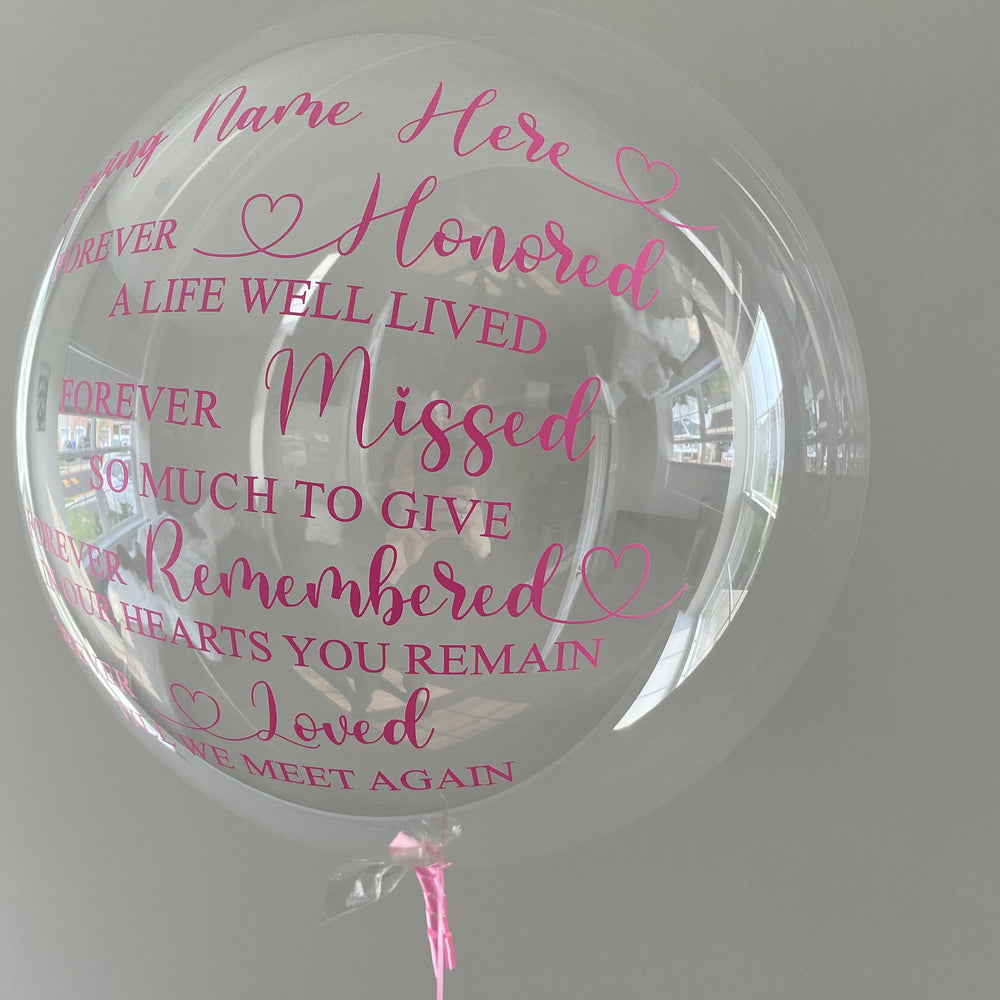 Name Here
FOREVER Honored
A LIFE WELL LIVED
FOREVER Missed
SO MUCH TO GIVE
FOREVER Remembered
IN OUR HEARTS YOU REMAIN
FOREVER Loved
TILL WE MEET AGAIN